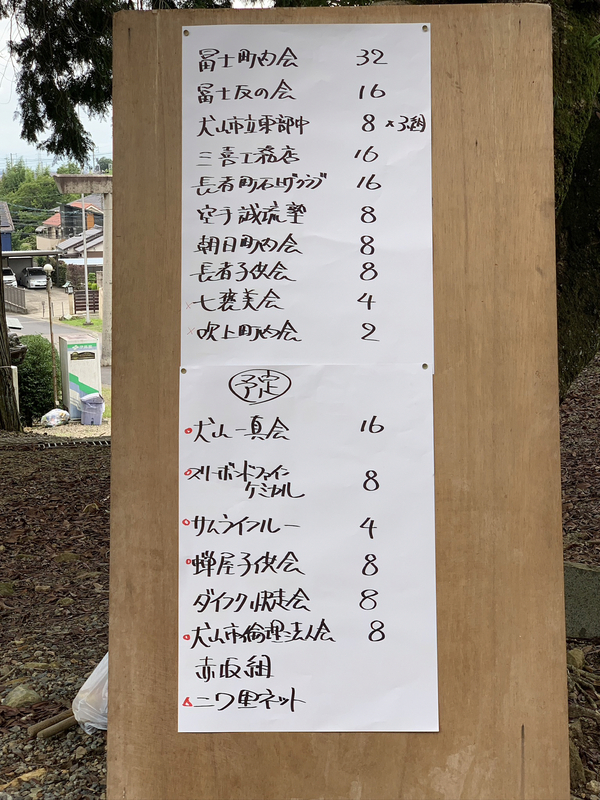 冨士町内会 32
冨士友の会 16
犬山市立東部中 8×3組
三喜工務店 16
長者町石上げクラブ 16
空手誠琉塾 8
朝日町内会 8
長者子供会 8
七褒美会 4
吹上町内会 2
予定
犬山一真会 16
スリーボンドファイン
ケミカル 8
サムライブルー 4
蝉屋子供会 8
ダイフク快走会 8
犬山市倫理法人会 8
赤坂組
ニワ里ネット